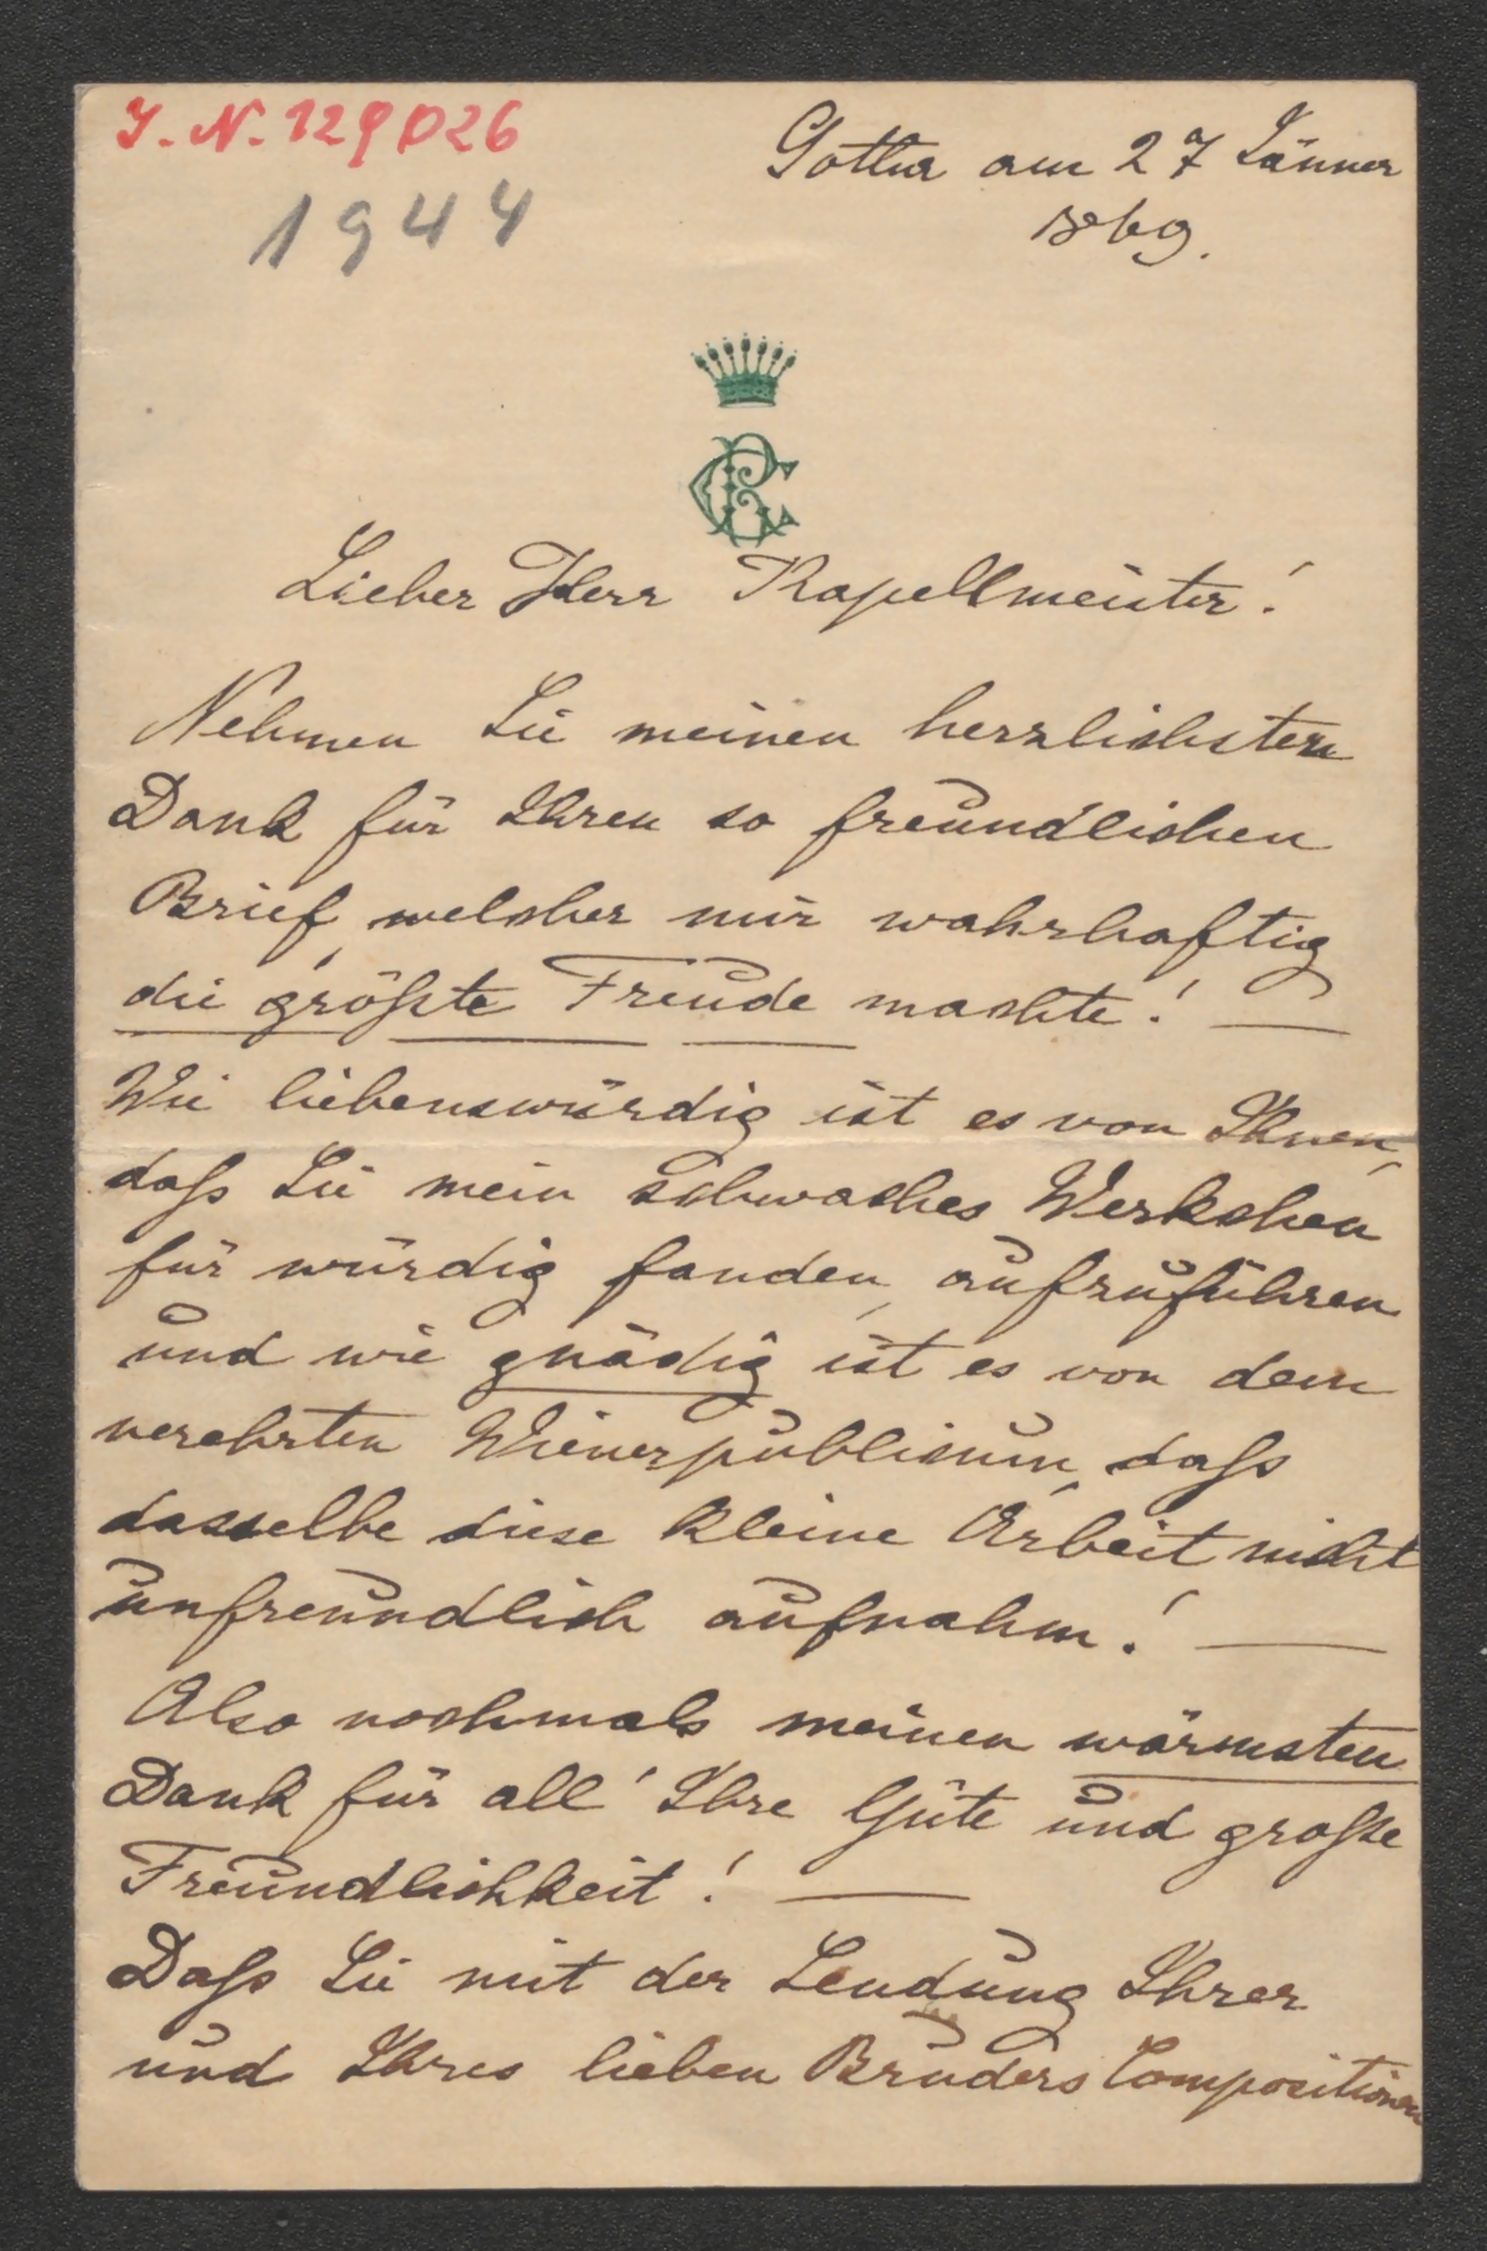 I. N. 129026
1944
Gotha am 27 Jänner
1869.
Lieber Herr Kapellmeister!
Nehmen Sie meinen herzlichsten
Dank für Ihren so freundlichen
Brief, welcher mir wahrhaftig
die größte Freude machte! —
Wie liebenswürdig ist es von Ihnen,
daß Sie mein schwaches Werkchen
für würdig fanden, aufzuführen
und wie gnädig ist es von dem
verehrten Wienerpublicum, daß
dasselbe diese kleine Arbeit nicht
unfreundlich aufnahm! —
Also nochmals meinen wärmsten
Dank für all' Ihre Güte und große
Freundlichkeit! —
Daß Sie mit der Sendung Ihrer
und Ihres lieben Bruders Compositionen